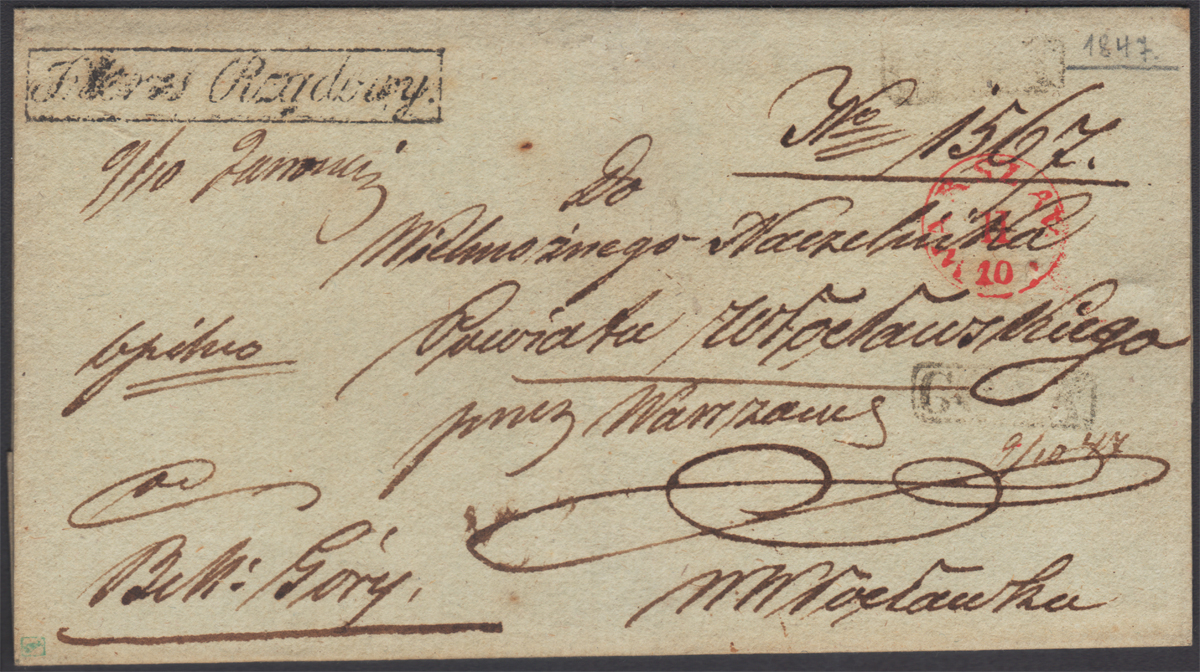 1847
Interes Rządowy.
No 1567.
9/10
Do
Wielmożnego Naczelnika
11
10
Powiatu Włocławskiego
opilno
przez Warszawę
9/10 47
od
Góry.
w Włocławku